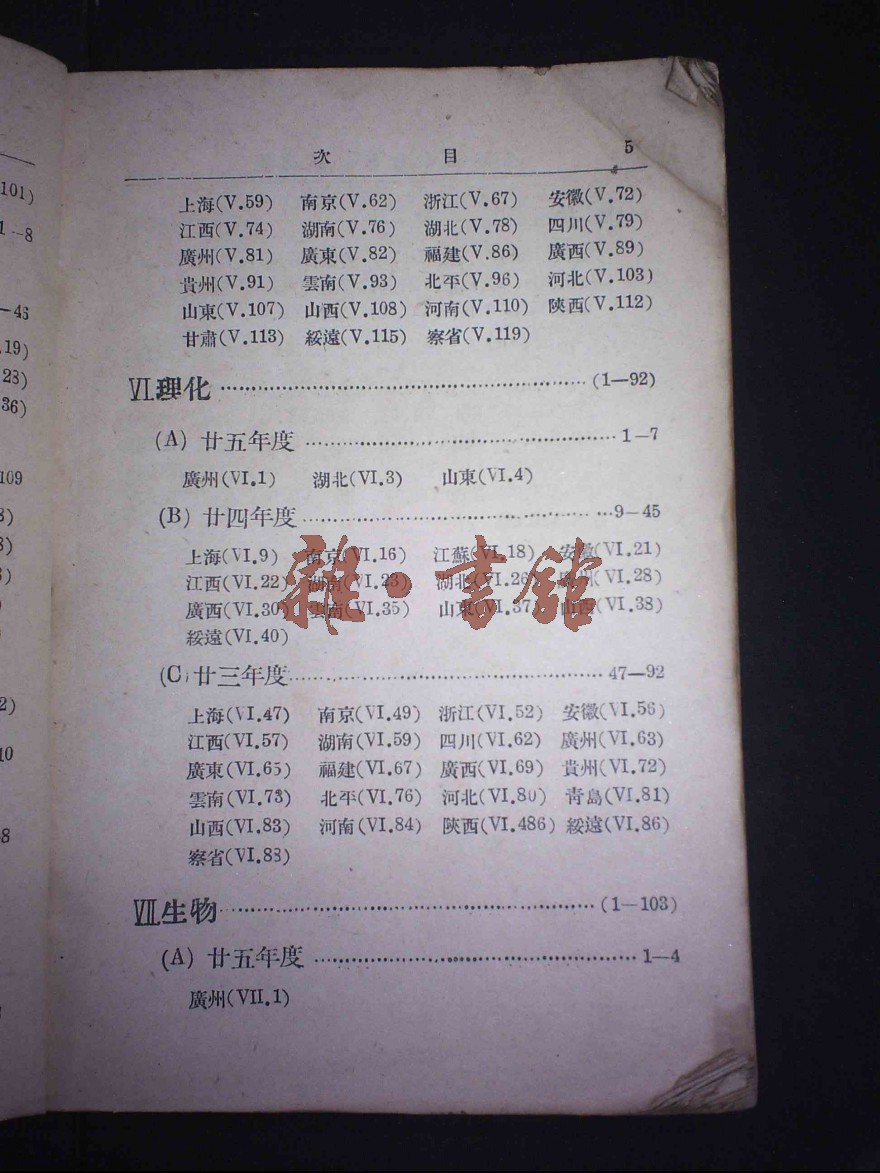 101)
1—8
—45
.19)
23)
36)
109
8)
8)
2)
10
次 目 5
上海(V.59) 南京(V.62) 浙江(V.67) 安徽(V.72)
江西(V.74) 湖南(V.76) 湖北(V.78) 四川(V.79)
廣州(V.81) 廣東(V.82) 福建(V.86) 廣西(V.89)
貴州(V.91) 雲南(V.93) 北平(V.96) 河北(V.103)
山東(V.107) 山西(V.108) 河南(V.110) 陝西(V.112)
甘肅(V.113) 綏遠(V.115) 察省(V.119)
VI.理化 ………………………………………… (1—92)
(A) 廿五年度 ………………………………… 1—7
廣州(VI.1) 湖北(VI.3) 山東(VI.4)
(B) 廿四年度 ………………………………… 9—45
上海(VI.9) 南京(VI.16) 江蘇(VI.18) 安徽(VI.21)
江西(VI.22) 湖南(VI.23) 湖北(VI.26) 廣州(VI.28)
廣西(VI.30) 雲南(VI.35) 山東(VI.37) 山西(VI.38)
綏遠(VI.40)
雜·書館
(C) 廿三年度 ………………………………… 47—92
上海(VI.47) 南京(VI.49) 浙江(VI.52) 安徽(VI.56)
江西(VI.57) 湖南(VI.59) 四川(VI.62) 廣州(VI.63)
廣東(VI.65) 福建(VI.67) 廣西(VI.69) 貴州(VI.72)
雲南(VI.73) 北平(VI.76) 河北(VI.80) 青島(VI.81)
山西(VI.83) 河南(VI.84) 陝西(VI.486) 綏遠(VI.86)
察省(VI.88)
VII.生物 ………………………………………… (1—103)
(A) 廿五年度 ………………………………… 1—4
廣州(VII.1)